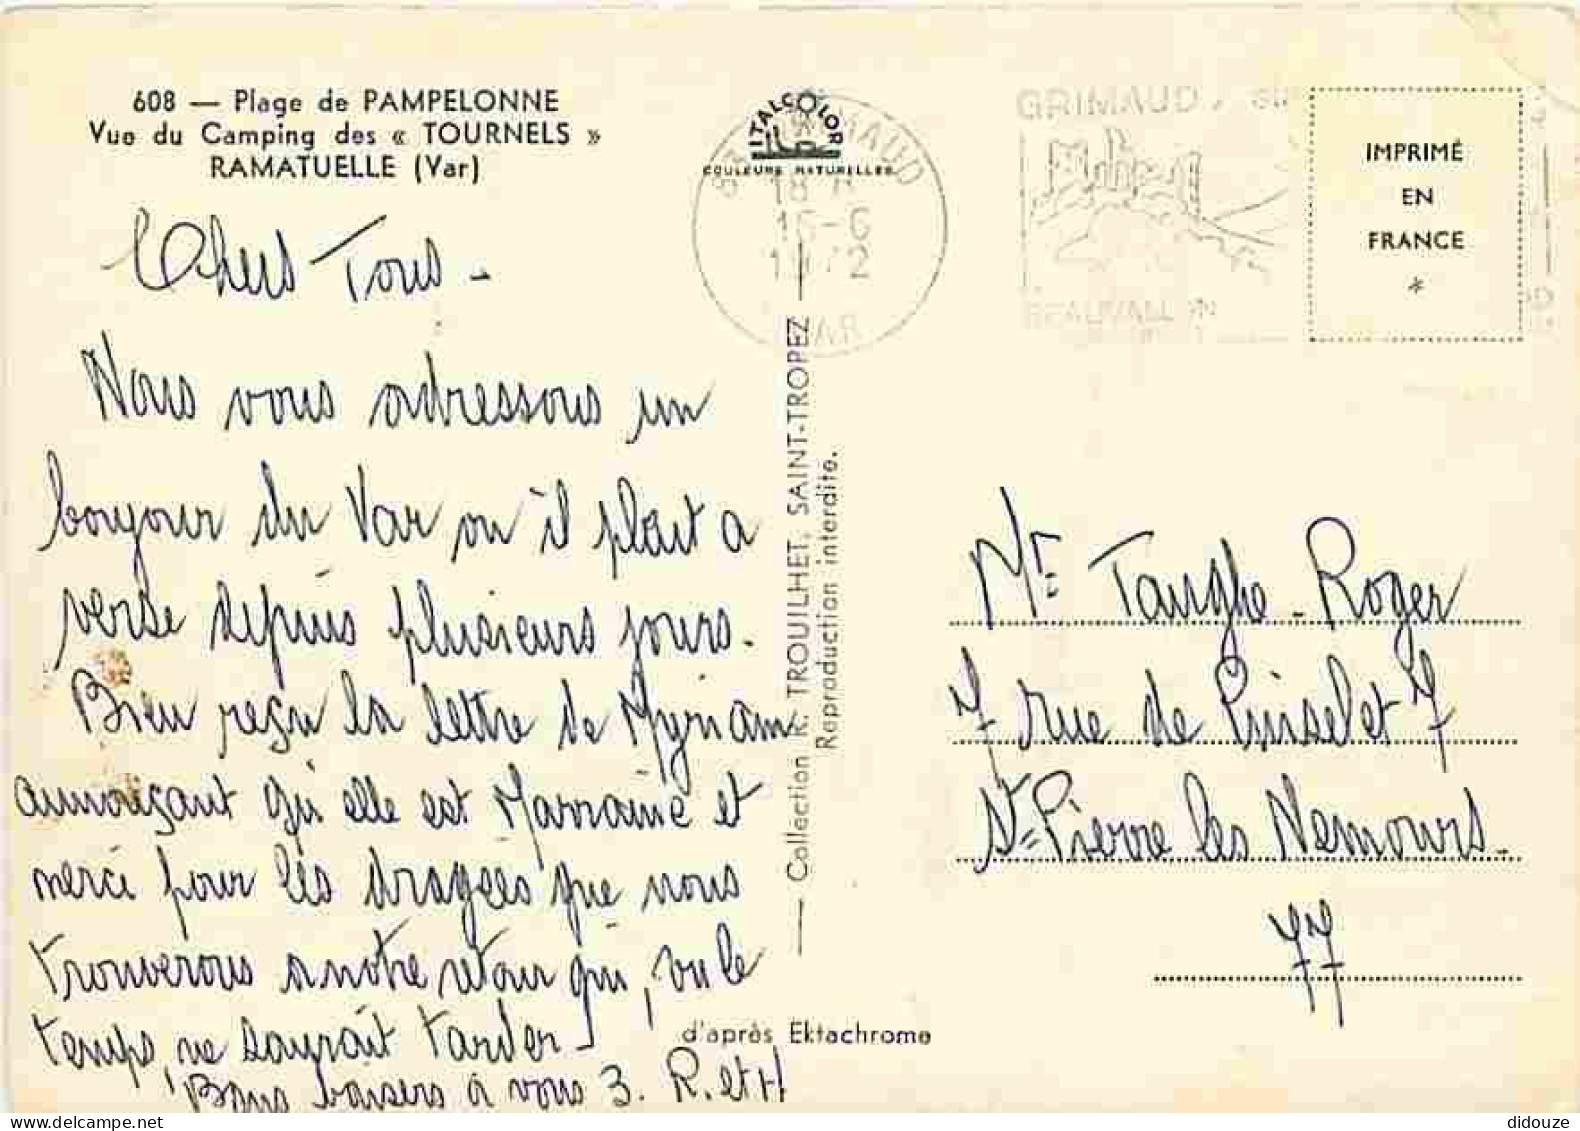 608 — Plage de PAMPELONNE
Vue du Camping des « TOURNELS »
RAMATUELLE (Var)
ITALCOLOR
COULEURS NATURELLES
18 H
15-6
1972
VAR
GRIMAUD
BEAUVALLON
IMPRIMÉ
EN
FRANCE
*
Chers Tous -
Nous vous adressons un
bonjour du Var ou il plait a
verse depuis plusieurs jours.
Bien reçu la lettre de Myriam
annonçant qu'elle est Marraine et
merci pour les dragées que nous
trouverons a notre retour qui, vu le
temps, ne saurait tarder -
Bons baisers à vous 3. R. et H
— Collection R. TROUILHET, SAINT-TROPEZ —
Reproduction interdite.
d'après Ektachrome
Mr. Tanghe - Roger
7 rue de Puiselet 7
St-Pierre les Nemours.
77
didouze